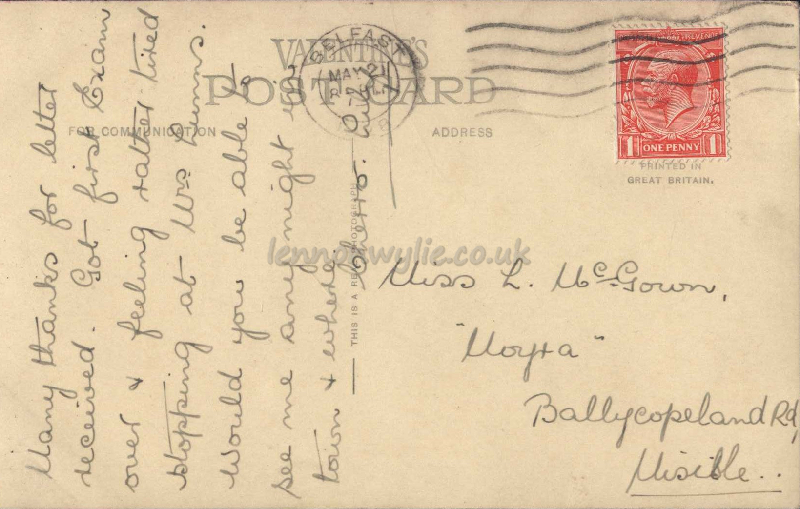 VALENTINE'S
POST CARD
FOR COMMUNICATION
ADDRESS
BELFAST
MAY 21
ONE PENNY
1 1
PRINTED IN
GREAT BRITAIN.
Many thanks for letter
received. Got first Exam
over & feeling rather tired
stopping at Mrs Lunns.
Would you be able to
see me any night in
town & where.
Cheerio.
THIS IS A REAL PHOTOGRAPH
lennonwylie.co.uk
Miss L. McGown,
"Moyra"
Ballycopeland Rd,
Misille..